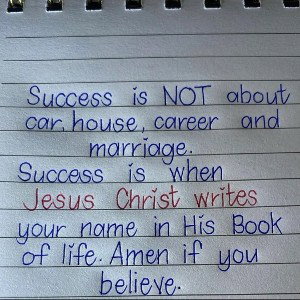 Success is NOT about
car, house, career and
marriage.
Success is when
Jesus Christ writes
your name in His Book
of life. Amen if you
believe.